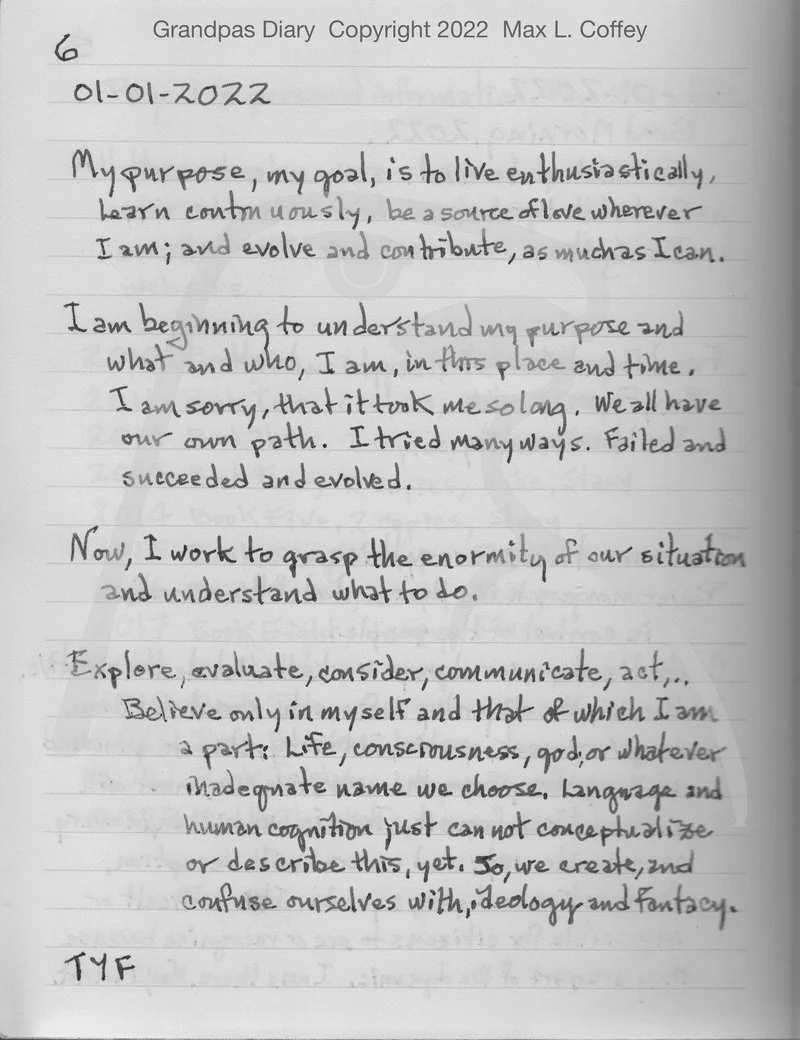 Grandpas Diary Copyright 2022 Max L. Coffey
6
01-01-2022
My purpose, my goal, is to live enthusiastically,
learn continuously, be a source of love wherever
I am; and evolve and contribute, as much as I can.
I am beginning to understand my purpose and
what and who, I am, in this place and time.
I am sorry, that it took me so long. We all have
our own path. I tried many ways. Failed and
succeeded and evolved.
Now, I work to grasp the enormity of our situation
and understand what to do.
Explore, evaluate, consider, communicate, act,..
Believe only in myself and that of which I am
a part: Life, consciousness, god; or whatever
inadequate name we choose. Language and
human cognition just can not conceptualize
or describe this, yet. So, we create, and
confuse ourselves with, ideology and fantacy.
TYF